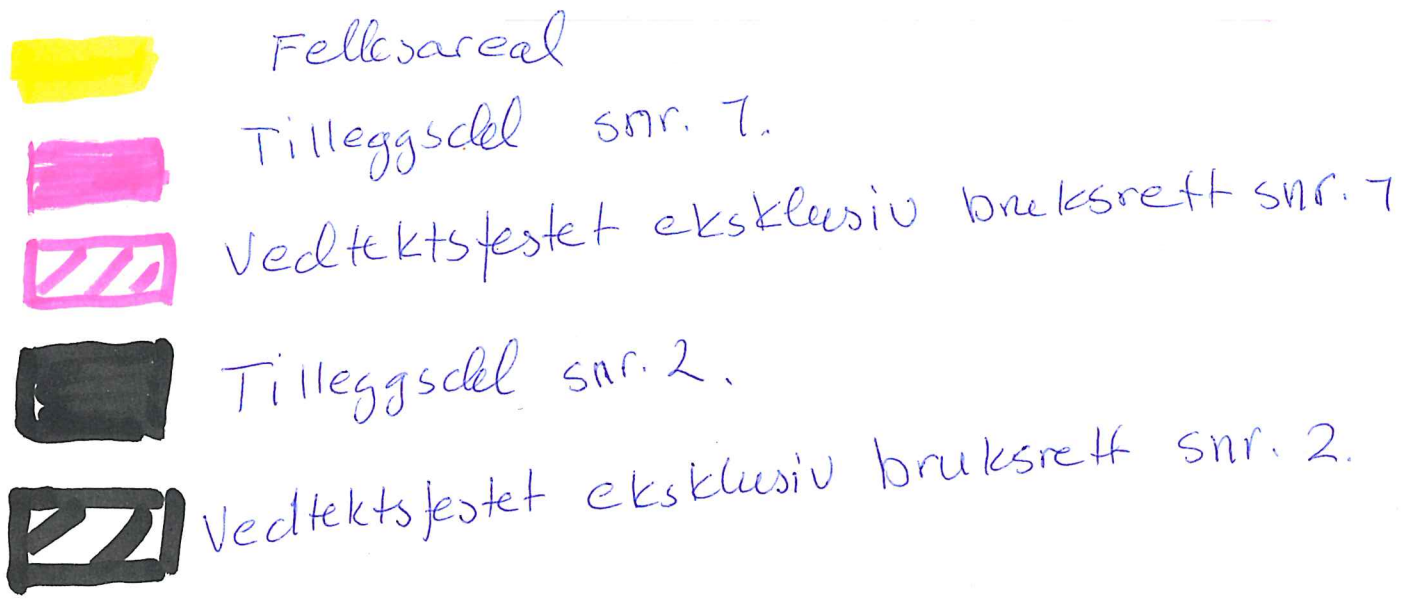 Fellesareal
Tilleggsdel snr. 1.
Vedtektsfestet eksklusiv bruksrett snr. 1
Tilleggsdel snr. 2.
Vedtektsfestet eksklusiv bruksrett snr. 2.